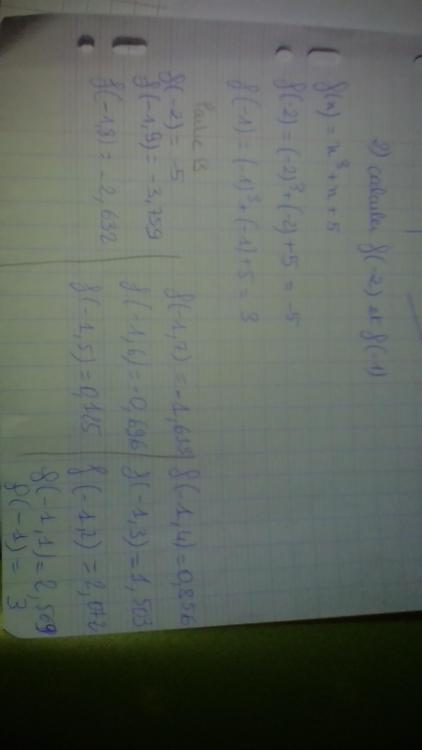 2) calculer f(-2) et f(-1)
f(x) = x³ + x + 5
f(-2) = (-2)³ + (-2) + 5 = -5
f(-1) = (-1)³ + (-1) + 5 = 3
Partie B
f(-2) = -5
f(-1,9) = -3,759
f(-1,8) = -2,632
f(-1,7) = -1,613
f(-1,6) = -0,696
f(-1,5) = 0,125
f(-1,4) = 0,856
f(-1,3) = 1,503
f(-1,2) = 2,072
f(-1,1) = 2,569
f(-1) = 3